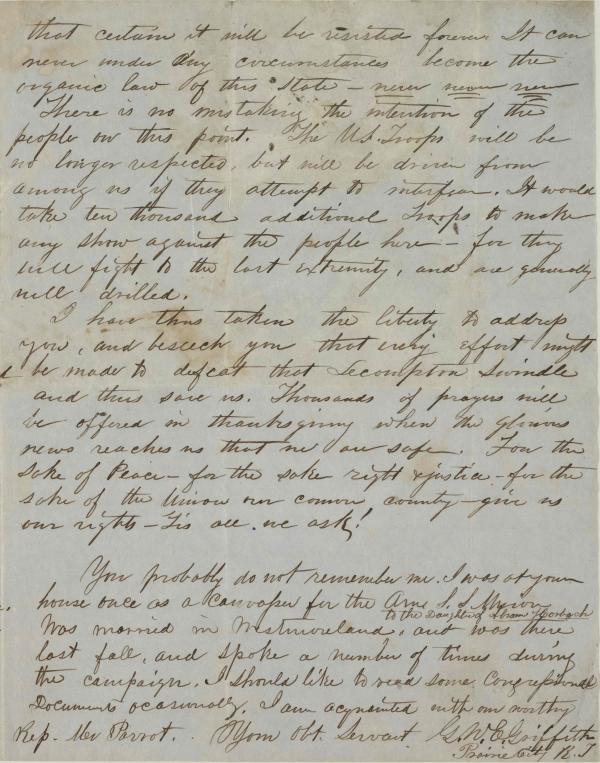 that certain it will be resisted forever. It can
never under any circumstances become the
organic law of this State – never never never
There is no mistaking the intention of the
people on this point. The U.S. Troops will be
no longer respected, but will be driven from
among us if they attempt to interfear. It would
take ten thousand additional Troops to make
any show against the people here – for they
will fight to the last extremity, and are generally
well drilled.
I have thus taken the liberty to address
you, and beseech you that every effort might
be made to defeat that Lecompton Swindle
and thus save us. Thousands of prayers will
be offered in thanksgiving when the glorious
news reaches us that we are safe. For the
sake of Peace – for the sake right & justice – for the
sake of the Union our comon country – give us
our rights – Tis all we ask!
You probably do not remember me. I was at your
house once as a Canvasser for the Am. S. S. Union
to the Daughter of Abram Horbach
Was married in Westmoreland, and was there
last fall, and spoke a number of times during
the campaign. I should like to read some Congressional
Documents ocasionally. I am acquainted with our worthy
Rep. Mr Parrot. Your Obt. Servant G. W. E. Griffith
Prairie City K. T